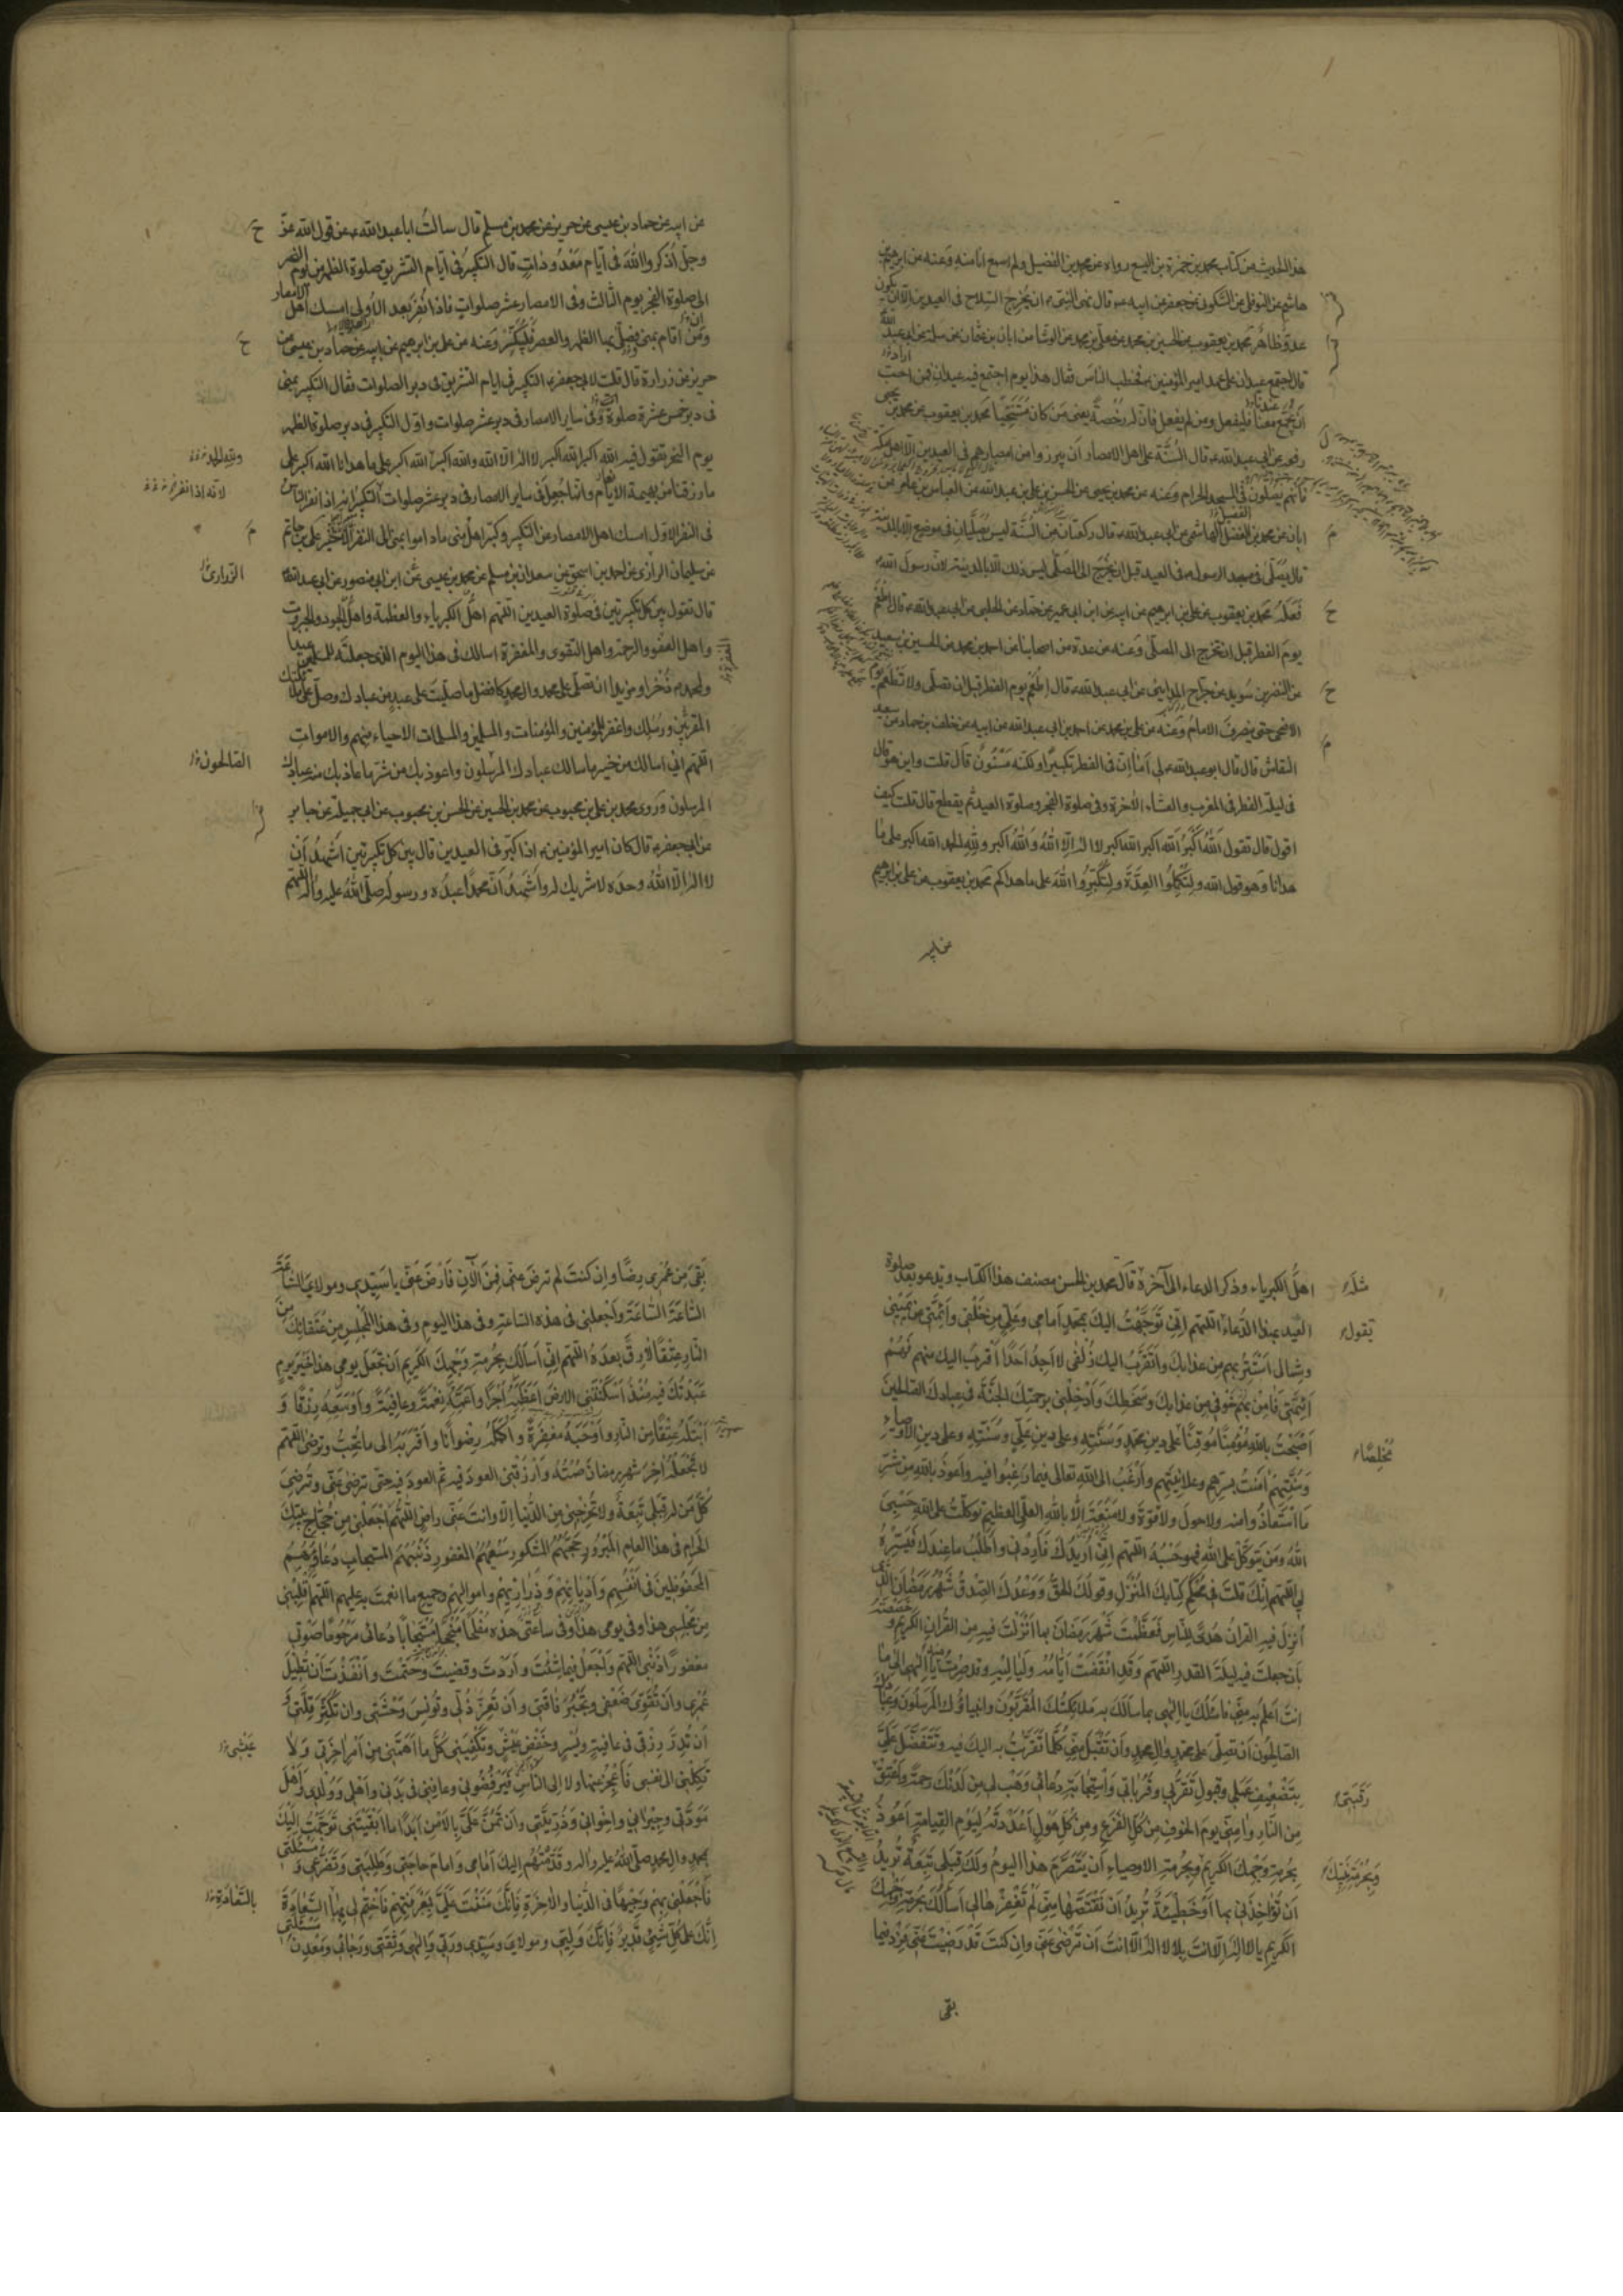 هذا الحديث من كتاب محمد بن حمزة بن اليسع رواه عن محمد بن الفضيل ولم اسمع انا منه وعنه عن ابرهيم بن
هاشم عن النوفلى عن السكونى عن جعفر عن ابيه ء قال نهى النبى ء ان يخرج السلاح فى العيدين الا ان يكون
عدو ظاهر محمد بن يعقوب عن الحسين بن محمد عن معلى بن محمد عن الوشا عن ابان بن عثمان عن سلمة عن ابى عبد الله
قال اجتمع عيدان على عهد امير المؤمنين ء فخطب الناس فقال هذا يوم اجتمع فيه عيدان فمن احب
ان يجمع معنا فليفعل ومن لم يفعل فان له رخصة يعنى من كان متنحيا محمد بن يعقوب عن محمد بن يحيى
رفعه عن ابى عبد الله ء قال السنة على اهل الامصار ان يبرزوا من امصارهم فى العيدين الا اهل مكة
فانهم يصلون فى المسجد الحرام وعنه عن محمد بن يحيى عن الحسن بن على بن عبد الله عن العباس بن عامر عن
ابان عن محمد بن الفضل الهاشمى عن ابى عبد الله ء قال ركعتان من السنة ليس يصليان فى موضع الا بالمدينة
قال يصلى فى مسجد الرسول ء فى العيد قبل ان يخرج الى المصلى ليس ذلك الا بالمدينة لان رسول الله ء
فعله محمد بن يعقوب عن على بن ابرهيم عن ابيه عن ابن ابى عمير عن حماد عن الحلبى عن ابى عبد الله ء قال اطعم
يوم الفطر قبل ان تخرج الى المصلى وعنه عن عدة من اصحابنا عن احمد بن محمد عن الحسين بن سعيد
عن النضر بن سويد عن جراح المداينى عن ابى عبد الله ء قال اطعم يوم الفطر قبل ان تصلى ولا تطعم يوم
الاضحى حتى ينصرف الامام وعنه عن على بن محمد عن احمد بن ابى عبد الله عن ابيه عن خلف بن حماد عن سعيد
النقاش قال قال ابو عبد الله ء لى اما ان فى الفطر تكبيرا ولكنه مسنون قال قلت واين هو قال
فى ليلة الفطر فى المغرب والعشاء الاخرة وفى صلوة الفجر وصلوة العيد ثم يقطع قال قلت كيف
اقول قال تقول الله اكبر الله اكبر لا اله الا الله والله اكبر ولله الحمد الله اكبر على ما
هدانا وهو قول الله ولتكملوا العدة ولتكبروا الله على ما هداكم محمد بن يعقوب عن على بن ابرهيم
عن ابيه
عن ابيه عن حماد بن عيسى عن حريز عن محمد بن مسلم قال سالت ابا عبد الله ء عن قول الله عز
وجل اذكروا الله فى ايام معدودات قال التكبير فى ايام التشريق صلوة الظهر من يوم النحر
الى صلوة الفجر يوم الثالث وفى الامصار عشر صلوات فاذا نفر بعد الاولى امسك اهل الامصار
ومن اقام بمنى فصلى بها الظهر والعصر فليكبر وعنه عن على بن ابرهيم عن ابيه عن حماد بن عيسى عن
حريز عن زرارة قال قلت لابى جعفر ء التكبير فى ايام التشريق فى دبر الصلوات فقال التكبير بمنى
فى دبر خمس عشرة صلوة وفى ساير الامصار فى دبر عشر صلوات واول التكبير فى دبر صلوة الظهر
يوم النحر تقول فيه الله اكبر الله اكبر لا اله الا الله والله اكبر الله اكبر على ما هدانا الله اكبر على
ولله الحمد
ما رزقنا من بهيمة الانعام وانما جعل فى ساير الامصار فى دبر عشر صلوات التكبير انه اذا نفر الناس
لانه اذا نفر
فى النفر الاول امسك اهل الامصار عن التكبير وكبر اهل منى ماداموا بمنى الى النفر الاخير على بن حاتم
عن سليمان الرازى عن احمد بن اسحق عن سعدان بن مسلم عن محمد بن عيسى عن ابن ابى منصور عن ابى عبد الله ء
الزرارى
قال تقول بين كل تكبيرتين فى صلوة العيدين اللهم اهل الكبرياء والعظمة واهل الجود والجبروت
واهل العفو والرحمة واهل التقوى والمغفرة اسالك فى هذا اليوم الذى جعلته للمسلمين عيدا
ولمحمد ء ذخرا ومزيدا ان تصلى على محمد وال محمد كافضل ما صليت على عبد من عبادك وصل على ملائكتك
المقربين ورسلك واغفر للمؤمنين والمؤمنات والمسلمين والمسلمات الاحياء منهم والاموات
اللهم انى اسالك من خير ما سالك عبادك المرسلون واعوذ بك من شر ما عاذ بك منه عبادك
الصالحون
المرسلون وروى محمد بن على بن محبوب عن محمد بن الحسين عن الحسن بن محبوب عن ابى جميلة عن جابر
عن ابى جعفر ء قال كان امير المؤمنين ء اذا كبر فى العيدين قال بين كل تكبيرتين اشهد ان
لا اله الا الله وحده لا شريك له واشهد ان محمدا عبده ورسوله صلى الله عليه واله اللهم
اهل الكبرياء وذكر الدعاء الى آخره قال محمد بن الحسن مصنف هذا الكتاب ويدعو بعد صلوة
مثله
العيد بهذا الدعاء اللهم انى توجهت اليك بمحمد امامى وعلى من خلفى وائمتى عن يمينى
يقول
وشمالى استتر بهم من عذابك واتقرب اليك زلفى لا اجد احدا اقرب اليك منهم فهم
ائمتى فامن بهم خوفى من عذابك وسخطك وادخلنى برحمتك الجنة فى عبادك الصالحين
اصبحت بالله مؤمنا موقنا على دين محمد وسنته وعلى دين على وسنته وعلى دين الاوصياء
مخلصا
وسنتهم امنت بسرهم وعلانيتهم وارغب الى الله تعالى فيما رغبوا فيه واعوذ بالله من شر
ما استعاذوا منه ولا حول ولا قوة ولا منعة الا بالله العلى العظيم توكلت على الله حسبى
الله ومن يتوكل على الله فهو حسبه اللهم انى اريدك فاردنى واطلب ما عندك فيسره
لى اللهم انك قلت فى محكم كتابك المنزل وقولك الحق ووعدك الصدق شهر رمضان الذى
انزل فيه القران هدى للناس فعظمت شهر رمضان بما انزلت فيه من القران الكريم وخصصته
بان جعلت فيه ليلة القدر اللهم وقد انقضت ايامه ولياليه وقد صرت يا الهى الى ما
انت اعلم به منى فاسئلك يا الهى بما سالك به ملائكتك المقربون وانبياؤك المرسلون وعبادك
الصالحون ان تصلى على محمد وال محمد وان تقبل منى كلما تقربت به اليك فيه وتتفضل على
بتضعيف عملى وقبول تقربى وقرباتى واستجابة دعائى وهب لى من لدنك رحمة واعتق
رقبتى
من النار وامنى يوم الخوف من كل الفزع ومن كل هول اعددته ليوم القيامة اعوذ
بحرمة وجهك الكريم وبحرمة الاوصياء ان يتصرم هذا اليوم ولك قبلى تبعة تريد
وبحرمة نبيك
ان تواخذنى بها او خطيئة تريد ان تقتصها منى لم تغفرها لى اسالك بحرمة وجهك
الكريم يا لا اله الا انت بلا اله الا انت ان ترضى عنى وان كنت قد رضيت عنى فزد فيما
بقى
بقى من عمرى رضا وان كنت لم ترض عنى فمن الآن فارض عنى يا سيدى ومولاى الساعة
الساعة الساعة واجعلنى فى هذه الساعة وفى هذا اليوم وفى هذا المجلس من عتقائك من
النار عتقا لا رق بعده اللهم انى اسالك بحرمة وجهك الكريم ان تجعل يومى هذا خير يوم
عبدتك فيه منذ اسكنتنى الارض اعظمه اجرا واعمه نعمة وعافية واوسعه رزقا و
ابتله عتقا من النار واوجبه مغفرة واكمله رضوانا واقربه الى ما تحب وترضى اللهم
لا تجعله آخر شهر رمضان صمته وارزقنى العود فيه ثم العود فيه حتى ترضى عنى وترضى
كل من له قبلى تبعة ولا تخرجنى من الدنيا الا وانت عنى راض اللهم اجعلنى من حجاج بيتك
الحرام فى هذا العام المبرور حجهم المشكور سعيهم المغفور ذنبهم المستجاب دعاؤهم
المحفوظين فى انفسهم واديانهم وذراريهم واموالهم وجميع ما انعمت به عليهم اللهم اقلبنى
من مجلسى هذا وفى يومى هذا وفى ساعتى هذه مفلحا منجحا مستجابا دعائى مرحوما صوتى
مغفورا ذنبى اللهم واجعل فيما شئت واردت وقضيت وحتمت وانفذت ان تطيل
عمرى وان تقوى ضعفى وتجبر فاقتى وان تعز ذلى وتونس وحشتى وان تكثر قلتى و
ان تدر رزقى فى عافية ويسر وخفض عيش وتكفينى كل ما اهمنى من امر اخرتى ولا
عيشى
تكلنى الى نفسى فاعجز عنها ولا الى الناس فيرفضونى وعافنى فى بدنى واهلى وولدى واهل
مودتى وجيرانى واخوانى وذريتى وان تمن على بالامن ابدا ما ابقيتنى توجهت اليك
بمحمد وال محمد صلى الله عليه واله وقدمتهم اليك امامى وامام حاجتى وطلبتى وتضرعى ومسئلتى
فاجعلنى بهم وجيها فى الدنيا والاخرة فانك مننت على بمعرفتهم فاختم لى بها السعادة
بالسعادة
انك على كل شىء قدير فانك وليى ومولاى وسيدى وربى والهى وثقتى ورجائى ومعدن مسئلتى